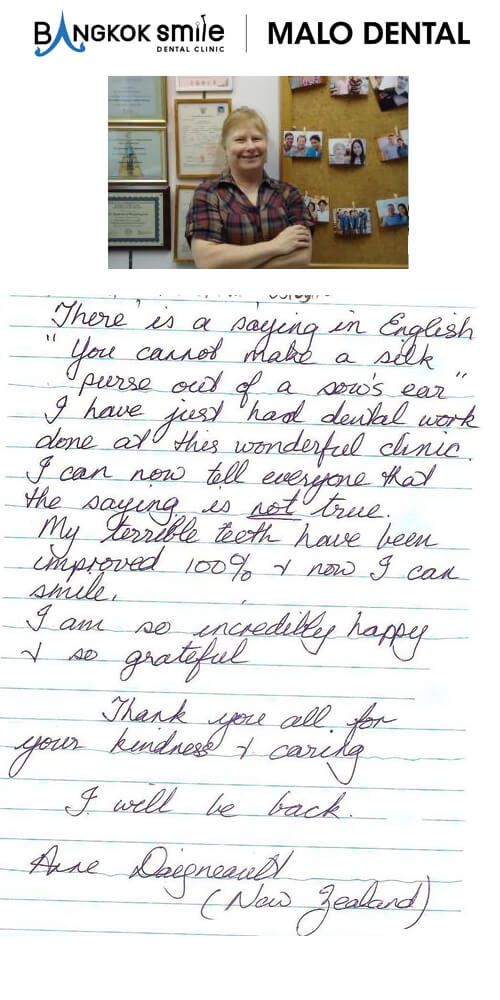 BANGKOK smile
DENTAL CLINIC
MALO DENTAL
There is a saying in English
"You cannot make a silk
purse out of a sow's ear"
I have just had dental work
done at this wonderful clinic.
I can now tell everyone that
the saying is not true.
My terrible teeth have been
improved 100% & now I can
smile.
I am so incredibly happy
& so grateful
Thank you all for
your kindness & caring
I will be back.
Anne Daigneault
(New Zealand)